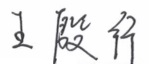 王殿行